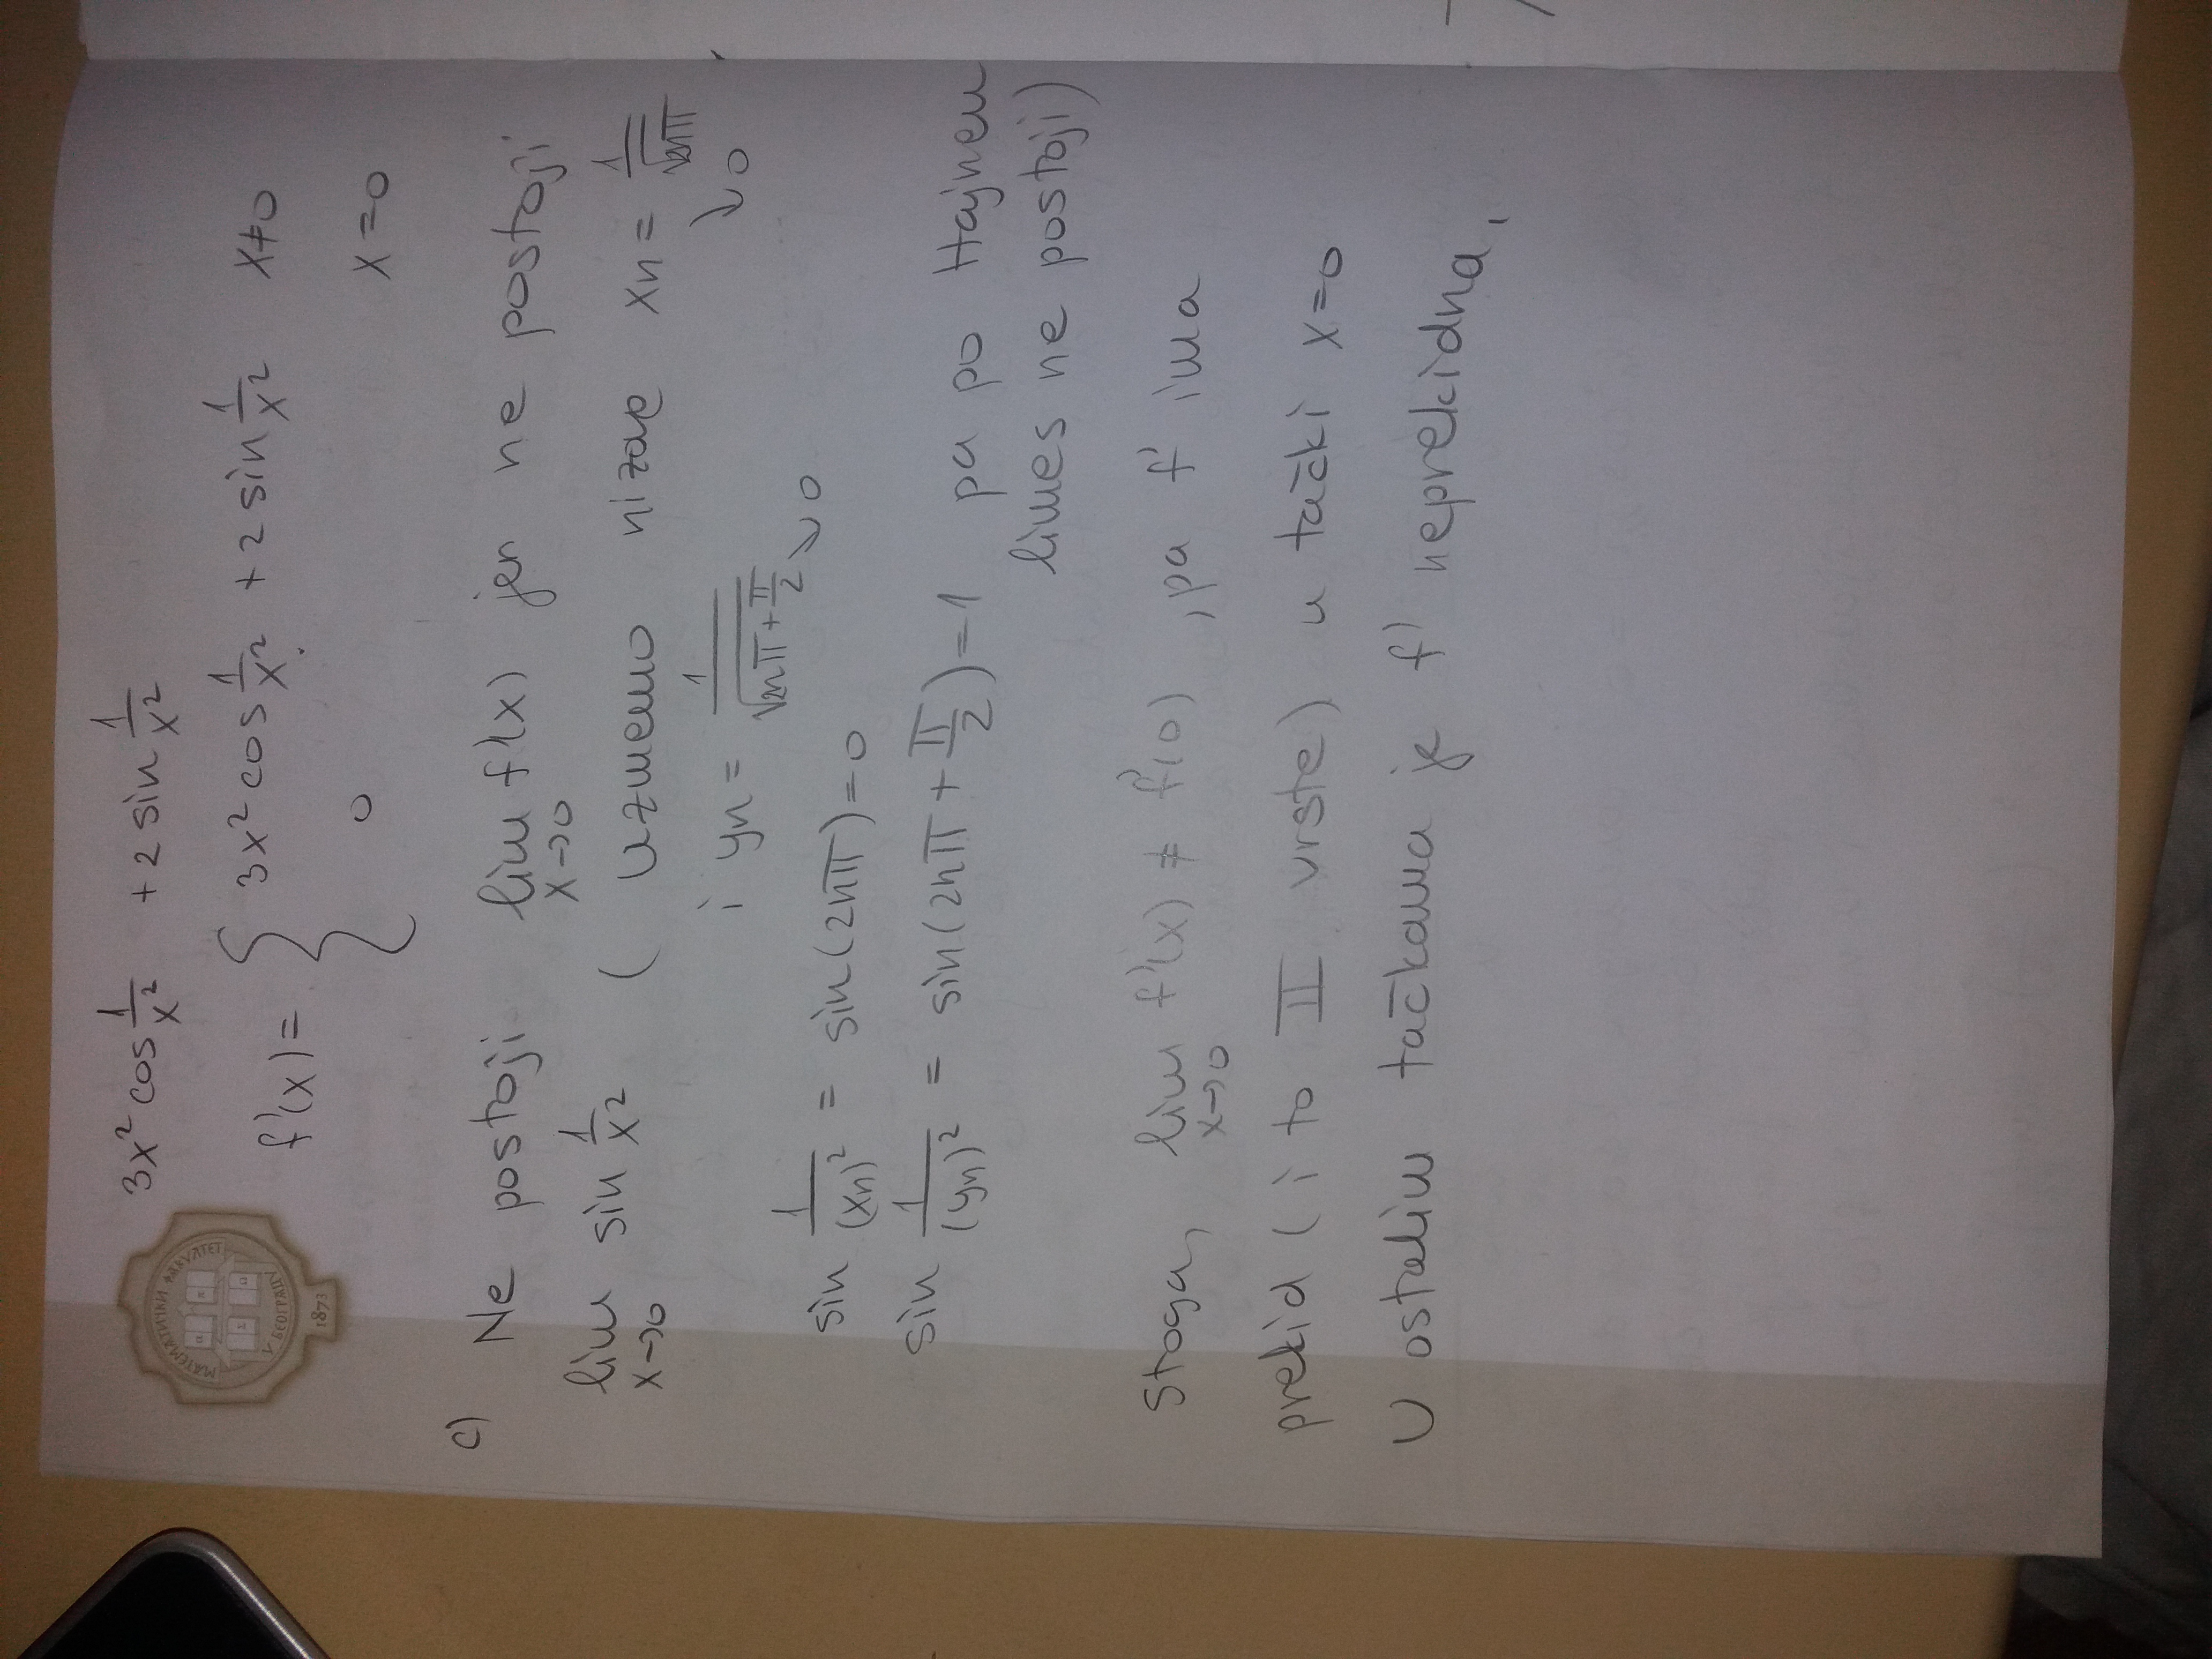 3x² cos 1/x² + 2 sin 1/x²
МАТЕМАТИЧКИ ФАКУЛТЕТ
У БЕОГРАДУ
1873
f'(x) = { 3x² cos 1/x² + 2 sin 1/x² x≠0
0 x=0
c) Ne postoji lim x→0 f'(x) jer ne postoji
lim x→0 sin 1/x² ( uzmemo nizove xn = 1/√2nπ ↘ 0
i yn = 1/√(2nπ + π/2) ↘ 0
sin 1/(xn)² = sin(2nπ) = 0
sin 1/(yn)² = sin(2nπ + π/2) = 1 pa po Hajneu
limes ne postoji)
Stoga, lim x→0 f'(x) ≠ f'(0) , pa f' ima
prekid ( i to II vrste) u tački x=0
U ostalim tačkama je f' neprekidna,